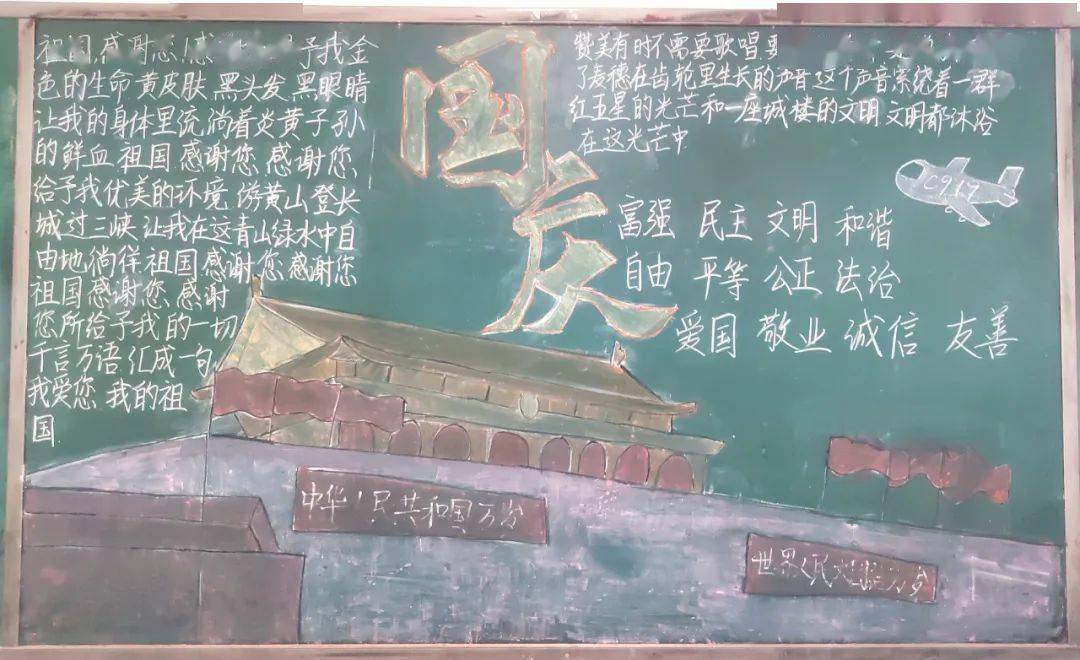 祖国,感谢您,感 予我金
色的生命黄皮肤,黑头发,黑眼睛
让我的身体里流淌着炎黄子孙
的鲜血祖国感谢您,感谢您
给予我优美的环境,游黄山,登长
城过三峡,让我在这青山绿水中自
由地徜徉祖国感谢您,感谢您
祖国感谢您,感谢
您所给予我的一切
千言万语汇成一句
我爱您,我的祖
国
国庆
赞美有时不需要歌唱
了麦穗在齿轮里生长的声音这个声音萦绕着一群
红五星的光芒和一座城楼的文明文明都沐浴
在这光芒中
C919
富强 民主 文明 和谐
自由 平等 公正 法治
爱国 敬业 诚信 友善
中华人民共和国万岁
世界人民大团结万岁